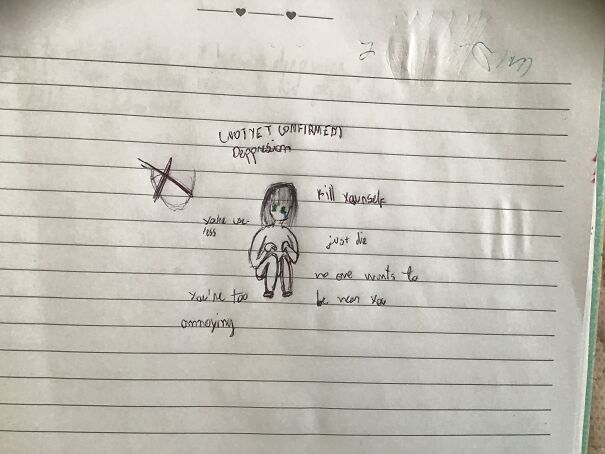 (NOT YET CONFIRMED)
Deppresion
kill yourself
you're use-
less
just die
no one wants to
be near you
you're too
annoying